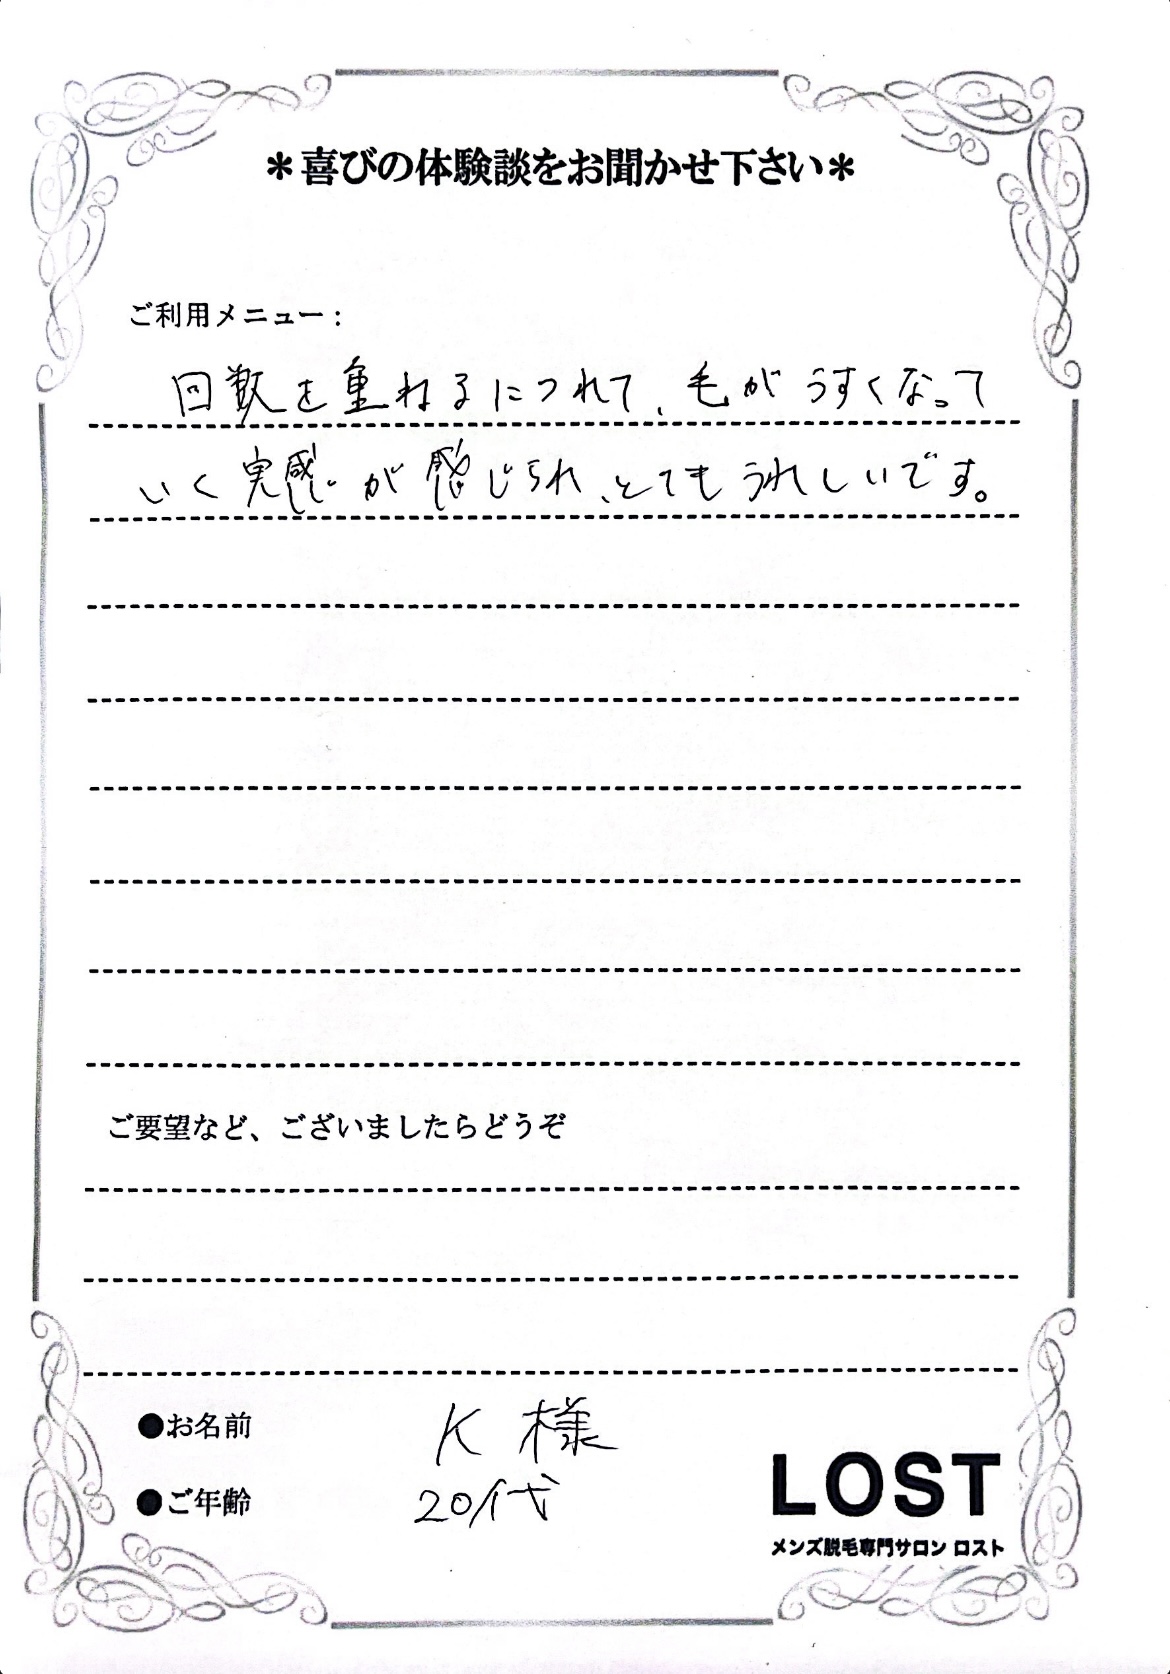 ＊喜びの体験談をお聞かせ下さい＊
ご利用メニュー：
回数を重ねるにつれて、毛がうすくなって
いく実感が感じられ、とてもうれしいです。
ご要望など、ございましたらどうぞ
●お名前 K 様
●ご年齢 20代
LOST
メンズ脱毛専門サロン ロスト